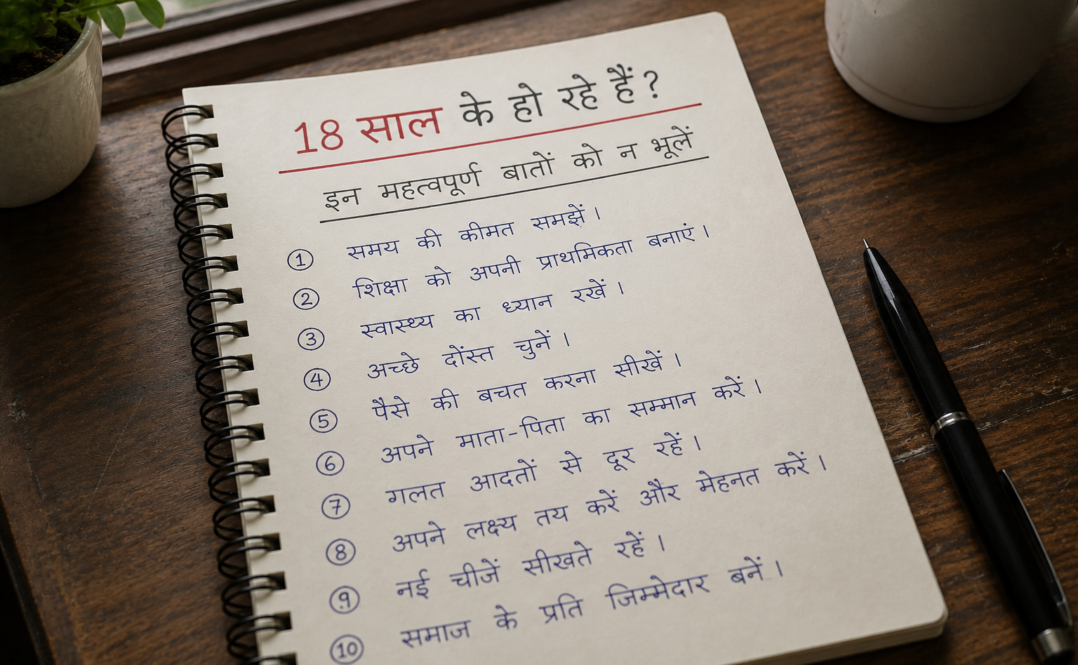 18 साल के हो रहे हैं?
इन महत्वपूर्ण बातों को न भूलें
① समय की कीमत समझें।
② शिक्षा को अपनी प्राथमिकता बनाएं।
③ स्वास्थ्य का ध्यान रखें।
④ अच्छे दोंस्त चुनें।
⑤ पैसे की बचत करना सीखें।
⑥ अपने माता-पिता का सम्मान करें।
⑦ गलत आदतों से दूर रहें।
⑧ अपने लक्ष्य तय करें और मेहनत करें।
⑨ नई चीजें सीखते रहें।
⑩ समाज के प्रति जिम्मेदार बनें।